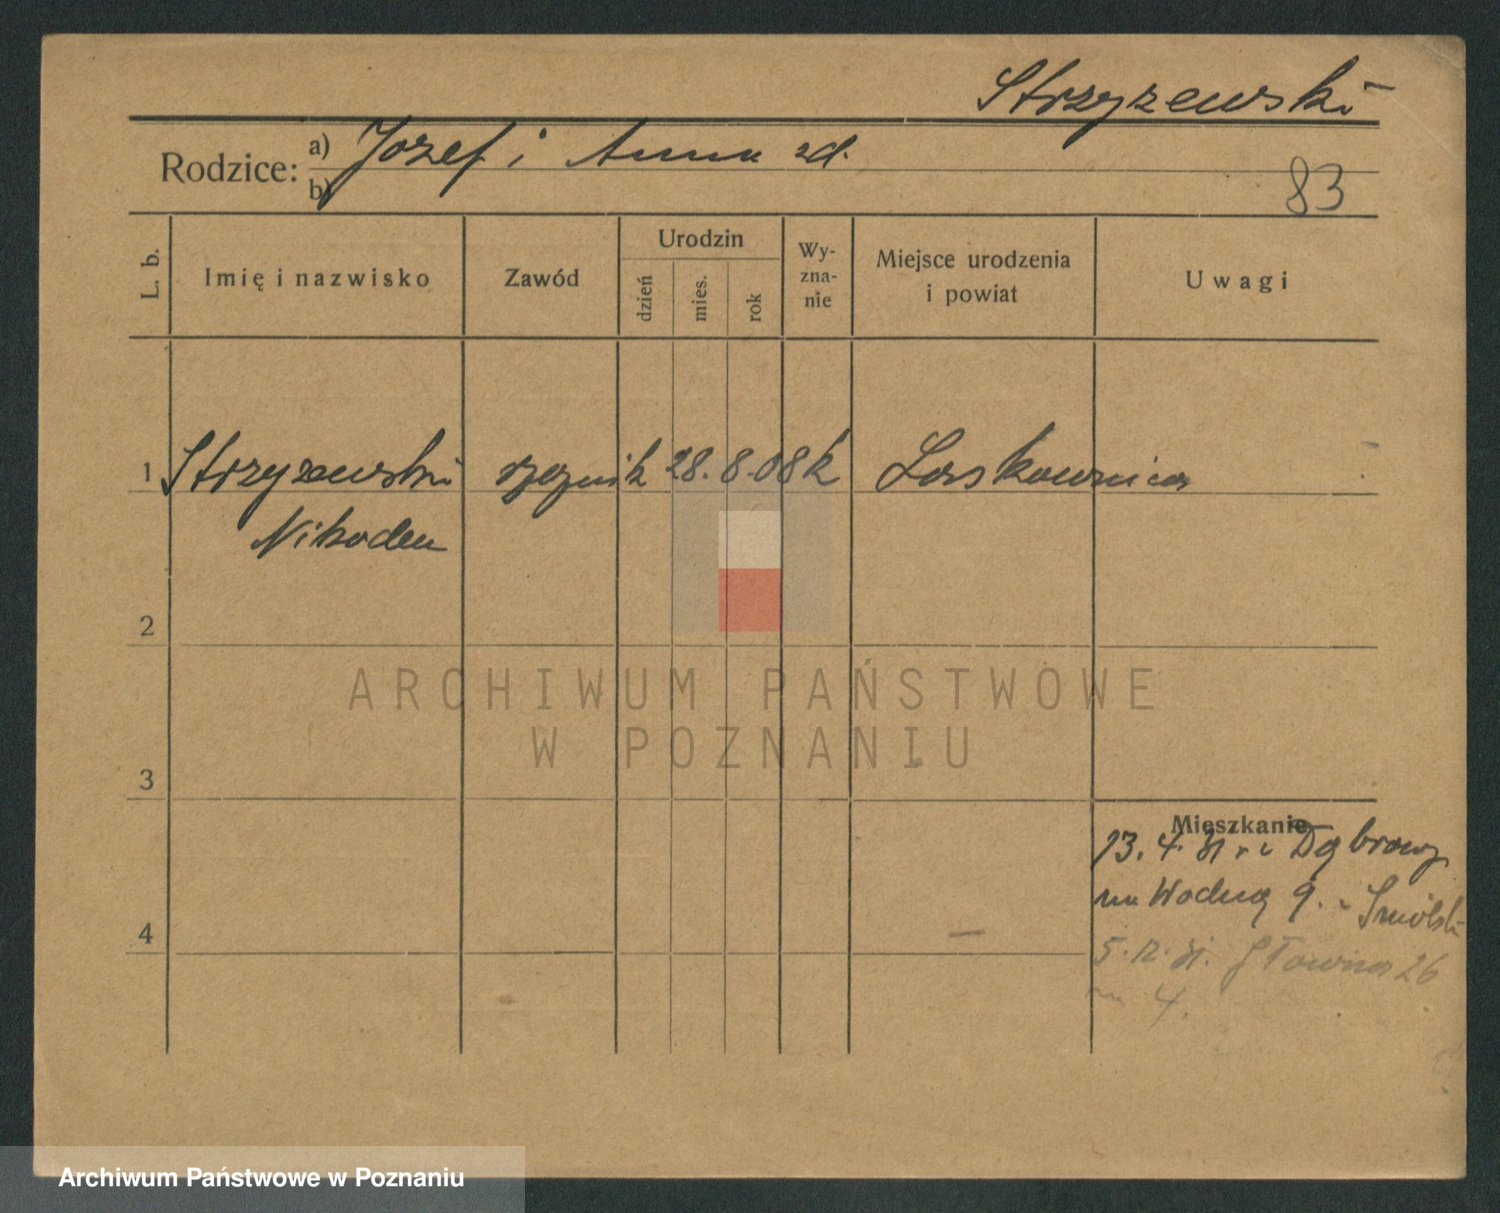 Strzyzewski
Rodzice: a) Jozef i Anna zd.
b)
83
L. b.
Imię i nazwisko
Zawód
Urodzin
dzień
mies.
rok
Wy-
zna-
nie
Miejsce urodzenia
i powiat
Uwagi
1 Strzyzewski rzeznik 28. 8. 08 k Laskownica
Nikodem
2
ARCHIWUM PAŃSTWOWE
W POZNANIU
3
Mieszkanie
13. 4. 31 Dąbrowy
Wodną 9.
4
5. 12. 31. Główna 26
m 4.
Archiwum Państwowe w Poznaniu